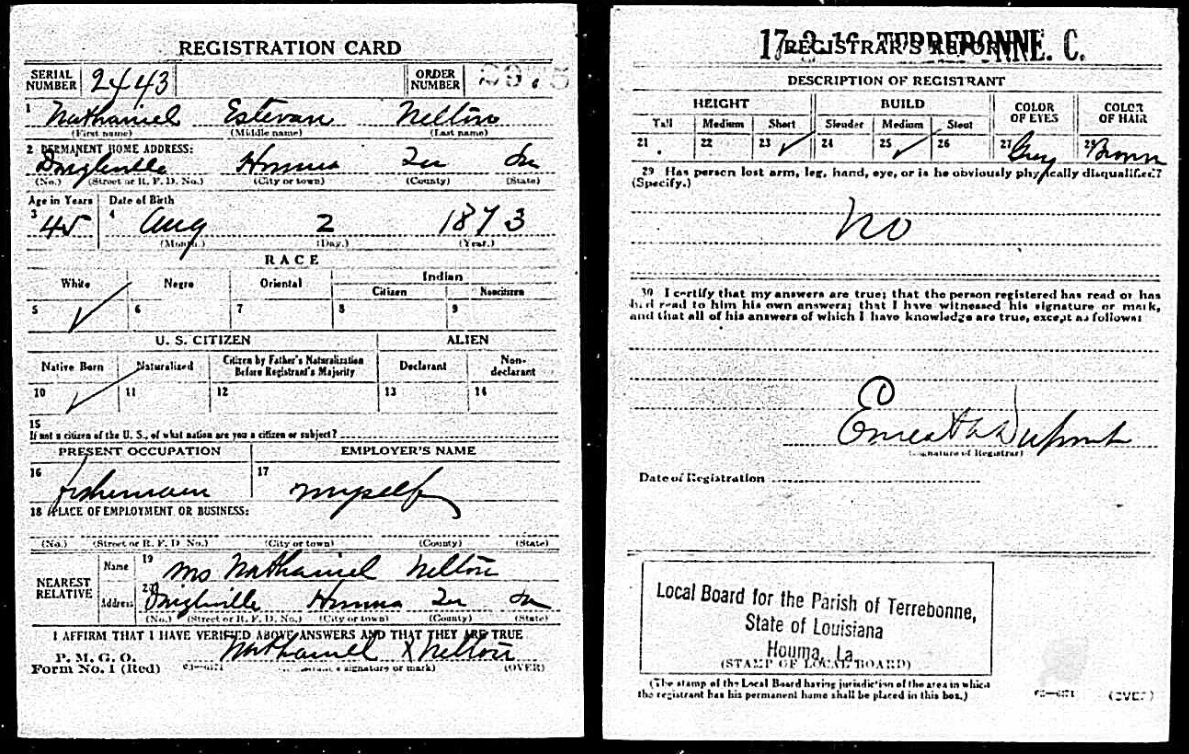 REGISTRATION CARD
SERIAL NUMBER 2443 ORDER NUMBER
1 Nathaniel Estevan Nelton
(First name) (Middle name) (Last name)
2 PERMANENT HOME ADDRESS:
Houma Ter La
(No.) (Street or R. F. D. No.) (City or town) (County) (State)
Age in Years Date of Birth
3 45 4 Aug 2 1873
(Month.) (Day.) (Year.)
RACE
White Negro Oriental Indian
Citizen Noncitizen
5 ✓ 6 7 8 9
U. S. CITIZEN ALIEN
Native Born Naturalized Citizen by Father's Naturalization Before Registrant's Majority Declarant Non-declarant
10 ✓ 11 12 13 14
15
If not a citizen of the U. S., of what nation are you a citizen or subject?
PRESENT OCCUPATION EMPLOYER'S NAME
16 fisherman 17 myself
18 PLACE OF EMPLOYMENT OR BUSINESS:
(No.) (Street or R. F. D. No.) (City or town) (County) (State)
NEAREST RELATIVE Name 19 Mrs Nathaniel Nelton
Address 20 Houma Ter La
(No.) (Street or R. F. D. No.) (City or town) (County) (State)
I AFFIRM THAT I HAVE VERIFIED ABOVE ANSWERS AND THAT THEY ARE TRUE
P. M. G. O.
Form No. 1 (Red) Nathaniel X Nelton
(Registrant's signature or mark) (OVER)
REGISTRAR'S REPORT
TERREBONNE. C.
DESCRIPTION OF REGISTRANT
HEIGHT BUILD COLOR OF EYES COLOR OF HAIR
Tall Medium Short Slender Medium Stout
21 22 23 ✓ 24 25 ✓ 26 27 Grey 28 Brown
29 Has person lost arm, leg, hand, eye, or is he obviously physically disqualified?
(Specify.)
no
30 I certify that my answers are true; that the person registered has read or has
had read to him his own answers; that I have witnessed his signature or mark,
and that all of his answers of which I have knowledge are true, except as follows:
Ernest A Dupont
(Signature of Registrar)
Date of Registration
Local Board for the Parish of Terrebonne,
State of Louisiana
Houma, La.
(STAMP OF LOCAL BOARD)
(The stamp of the Local Board having jurisdiction of the area in which
the registrant has his permanent home shall be placed in this box.)
(OVER)